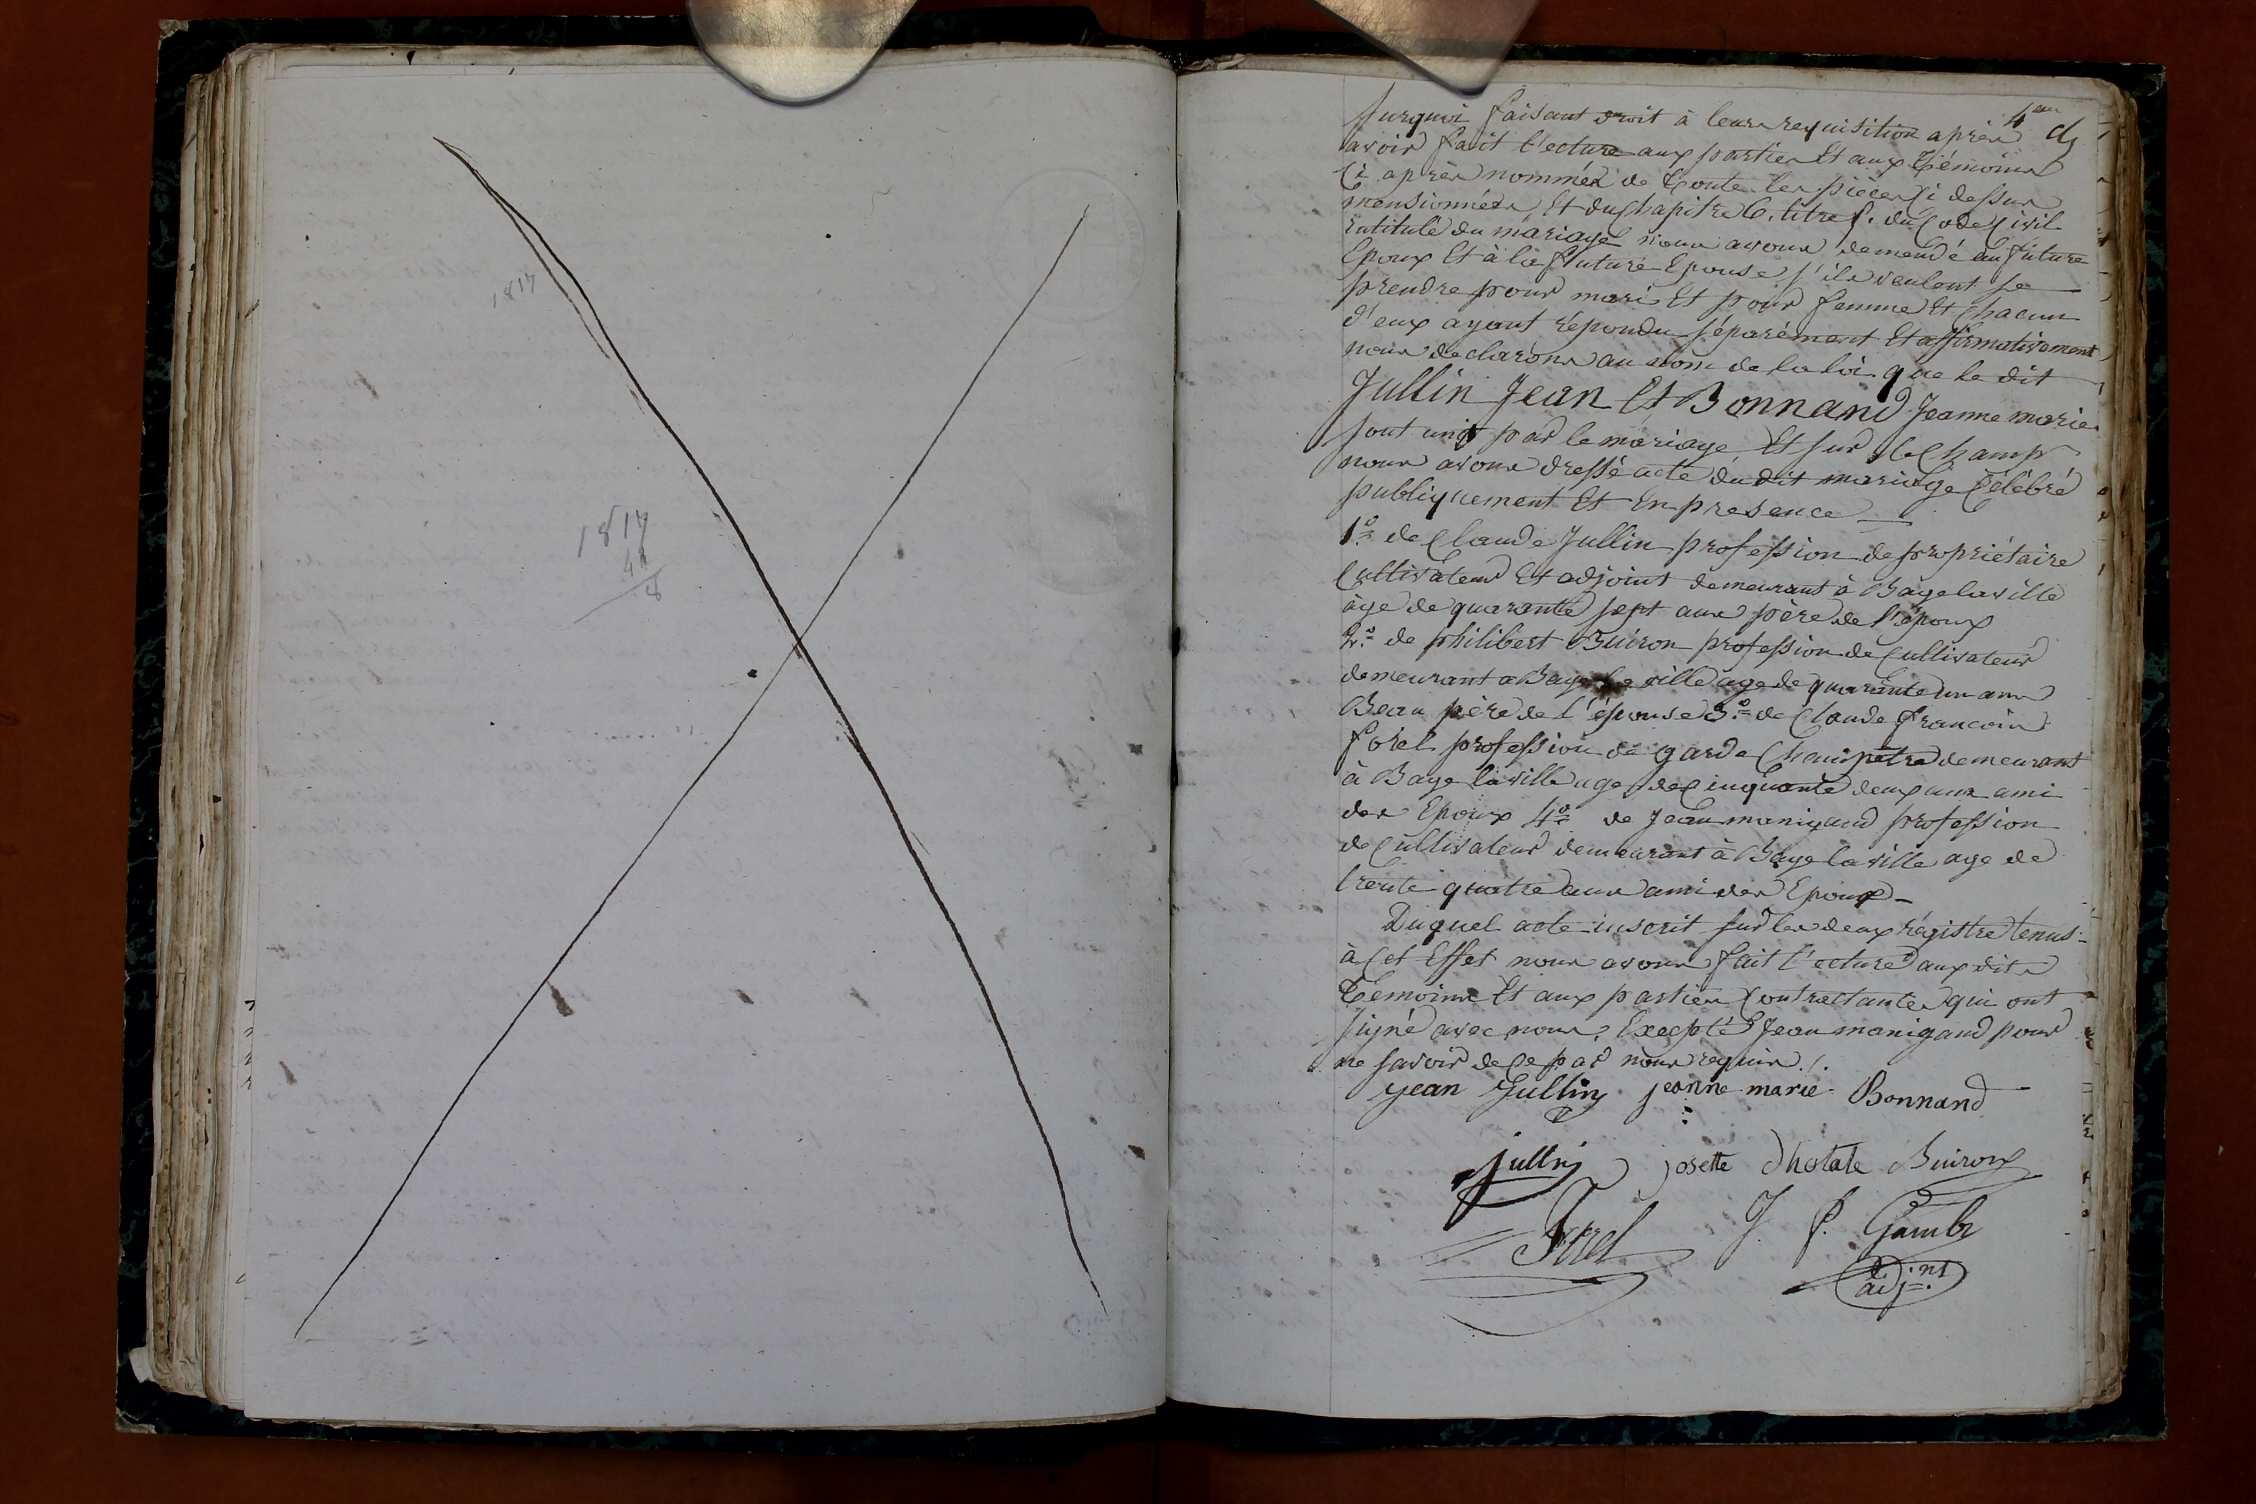 1817
1817
41
8
4em
Surquoi faisant droit à leur requisition après
avoir fait l'ecture aux parties Et aux Témoins
Ci après nommés de toute les pièces Ci dessus
mensionnées Et du Chapitre 6. titre 5. du Code Civil
Entitulé du mariage nous avons demendé au future
Epoux Et à la future Epouse s'ils veulent se
prendre pour mari Et pour femme Et chacun
d'eux ayant répondu séparément Et affirmativement
nous declarons au nom de la loi que le dit
Jullin Jean Et Bonnand Jeanne marie
sont unis par le mariage Et sur le Champ
nous avons dressé acte du dit mariage Célébré
publiquement Et En presence
1o de Claude Jullin profession de propriétaire
Cultivateur Et adjoint demeurant à Bage la ville
àge de quarante sept ans père de l'époux
2o de philibert Buiron profession de Cultivateur
demeurant a Bage la ville age de quarante un ans
Beau père de l'épouse 3o de Claude francois
forel profession de garde Champêtre demeurant
à Bage la ville age de Cinquante deux ans ami
des Epoux 4o de Jean manigand profession
de Cultivateur demeurant à Bage la ville age de
trente quatre ans ami des Epoux
Duquel acte inscrit sur les deux régistre tenus
à Cet Effet nous avons fait l'ecture aux dits
Témoins Et aux parties Contractantes qui ont
signé avec nous, Excepté Jean manigand pour
ne savoir de Ce par nous requis ./.
jean Jullin jeanne marie Bonnand
jullin josette dhotale Buiron
Forel J. P. Gambr
adj.nt